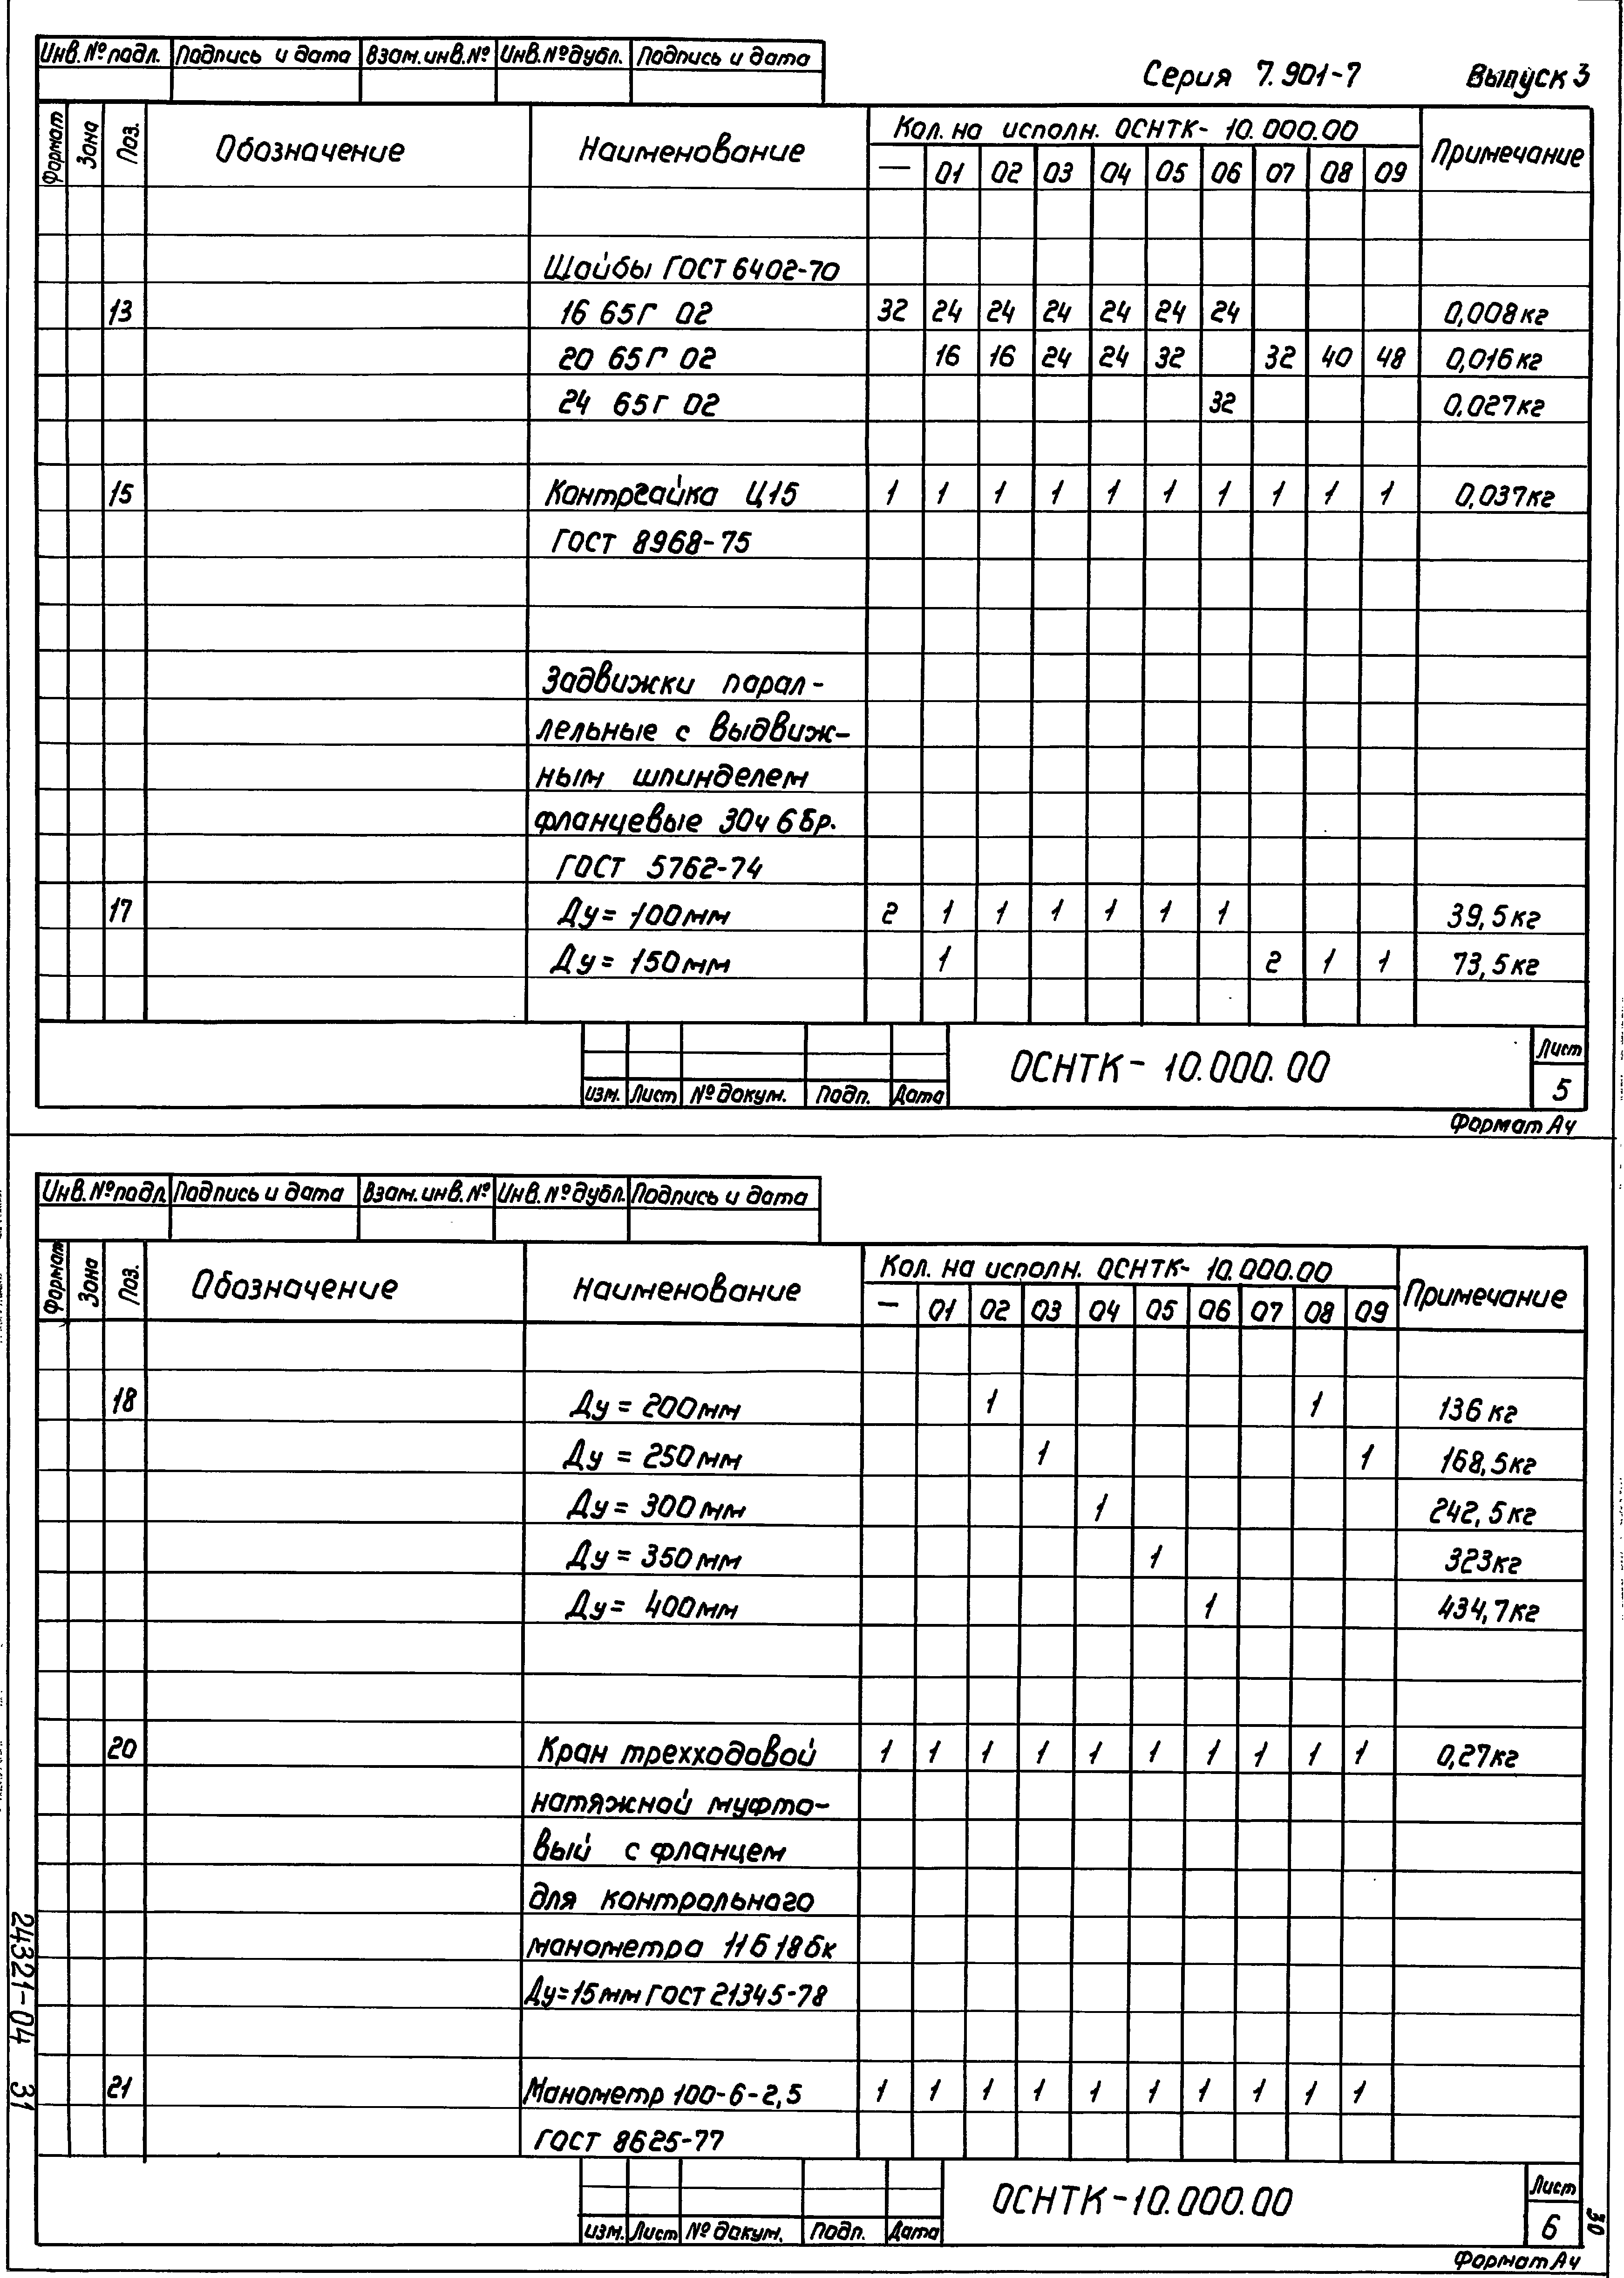 Инв.№подл. Подпись и дата Взам.инв.№ Инв.№дубл. Подпись и дата
Серия 7.901-7 Выпуск 3
Формат Зона Поз. Обозначение Наименование Кол. на исполн. ОСНТК-10.000.00 Примечание
— 01 02 03 04 05 06 07 08 09
Шайбы ГОСТ 6402-70
13 16 65Г 02 32 24 24 24 24 24 24 0,008кг
20 65Г 02 16 16 24 24 32 32 40 48 0,016кг
24 65Г 02 32 0,027кг
15 Контргайка Ц15 1 1 1 1 1 1 1 1 1 1 0,037кг
ГОСТ 8968-75
Задвижки парал-
лельные с выдвиж-
ным шпинделем
фланцевые 30ч 6бр.
ГОСТ 5762-74
17 Ду=100мм 2 1 1 1 1 1 1 39,5кг
Ду=150мм 1 2 1 1 73,5кг
ОСНТК-10.000.00 Лист
изм. Лист № докум. Подп. Дата 5
Формат А4
Инв.№подл. Подпись и дата Взам.инв.№ Инв.№дубл. Подпись и дата
Формат Зона Поз. Обозначение Наименование Кол. на исполн. ОСНТК-10.000.00 Примечание
— 01 02 03 04 05 06 07 08 09
18 Ду=200мм 1 1 136кг
Ду=250мм 1 1 168,5кг
Ду=300мм 1 242,5кг
Ду=350мм 1 323кг
Ду=400мм 1 434,7кг
20 Кран трехходовой 1 1 1 1 1 1 1 1 1 1 0,27кг
натяжной муфто-
вый с фланцем
для контрольного
манометра 11Б18бк
Ду=15мм ГОСТ 21345-78
21 Манометр 100-6-2,5 1 1 1 1 1 1 1 1 1 1
ГОСТ 8625-77
ОСНТК-10.000.00 Лист
изм. Лист № докум. Подп. Дата 6
Формат А4
24321-04 31
30